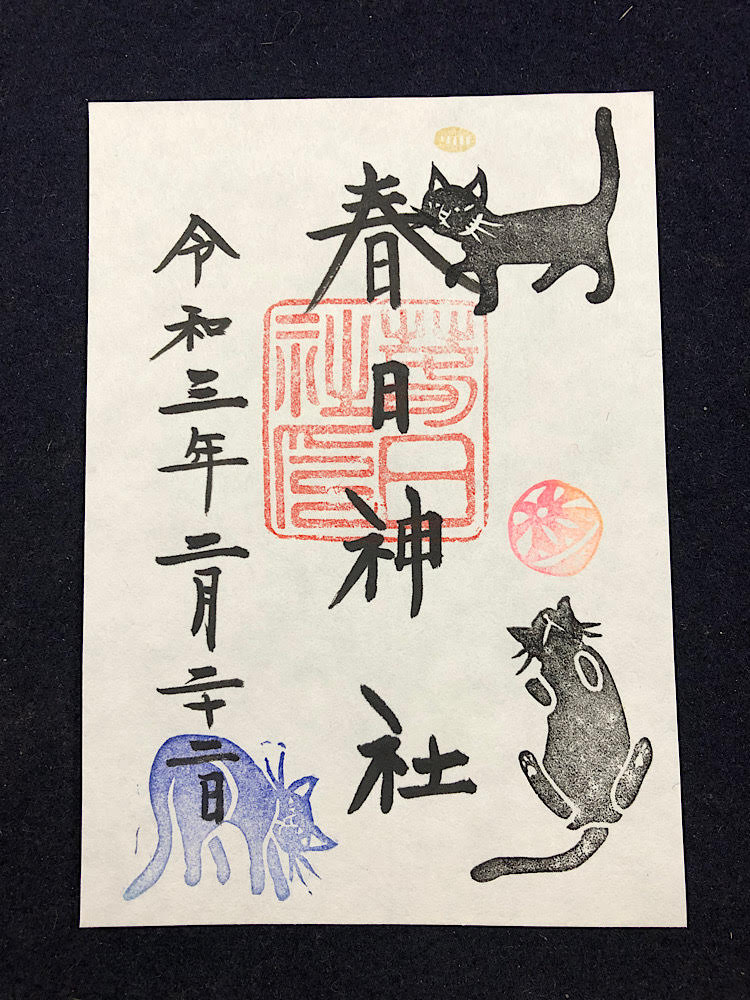 春日神社
春日社印
令和三年二月二十二日